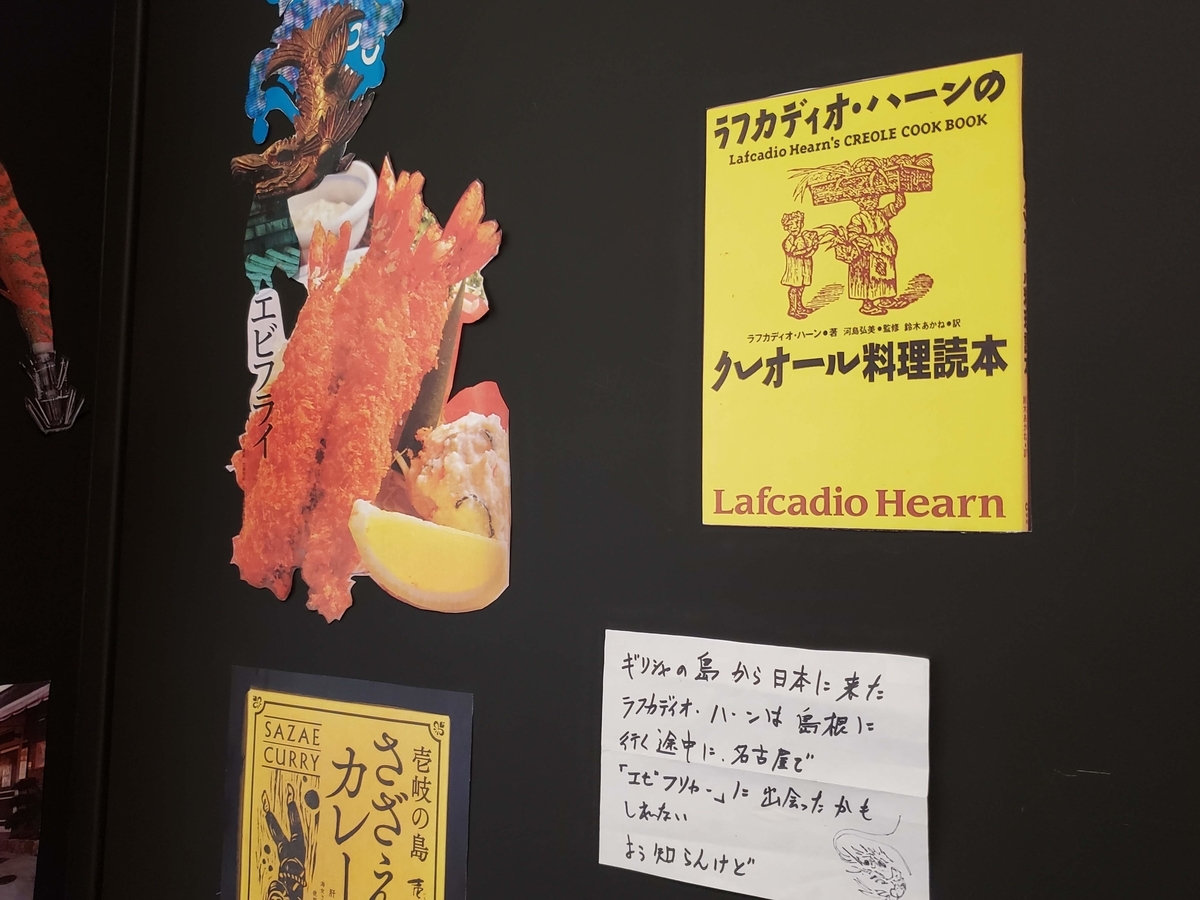 エビフライ
ラフカディオ・ハーンの
Lafcadio Hearn's CREOLE COOK BOOK
ラフカディオ・ハーン●著 河島弘美●監修 鈴木あかね●訳
クレオール料理読本
Lafcadio Hearn
SAZAE
CURRY
壱岐の島
さざえ
カレー
ギリシャの島から日本に来た
ラフカディオ・ハーンは島根に
行く途中に、名古屋で
「エビフリャー」に出会ったかも
しれない
よう知らんけど